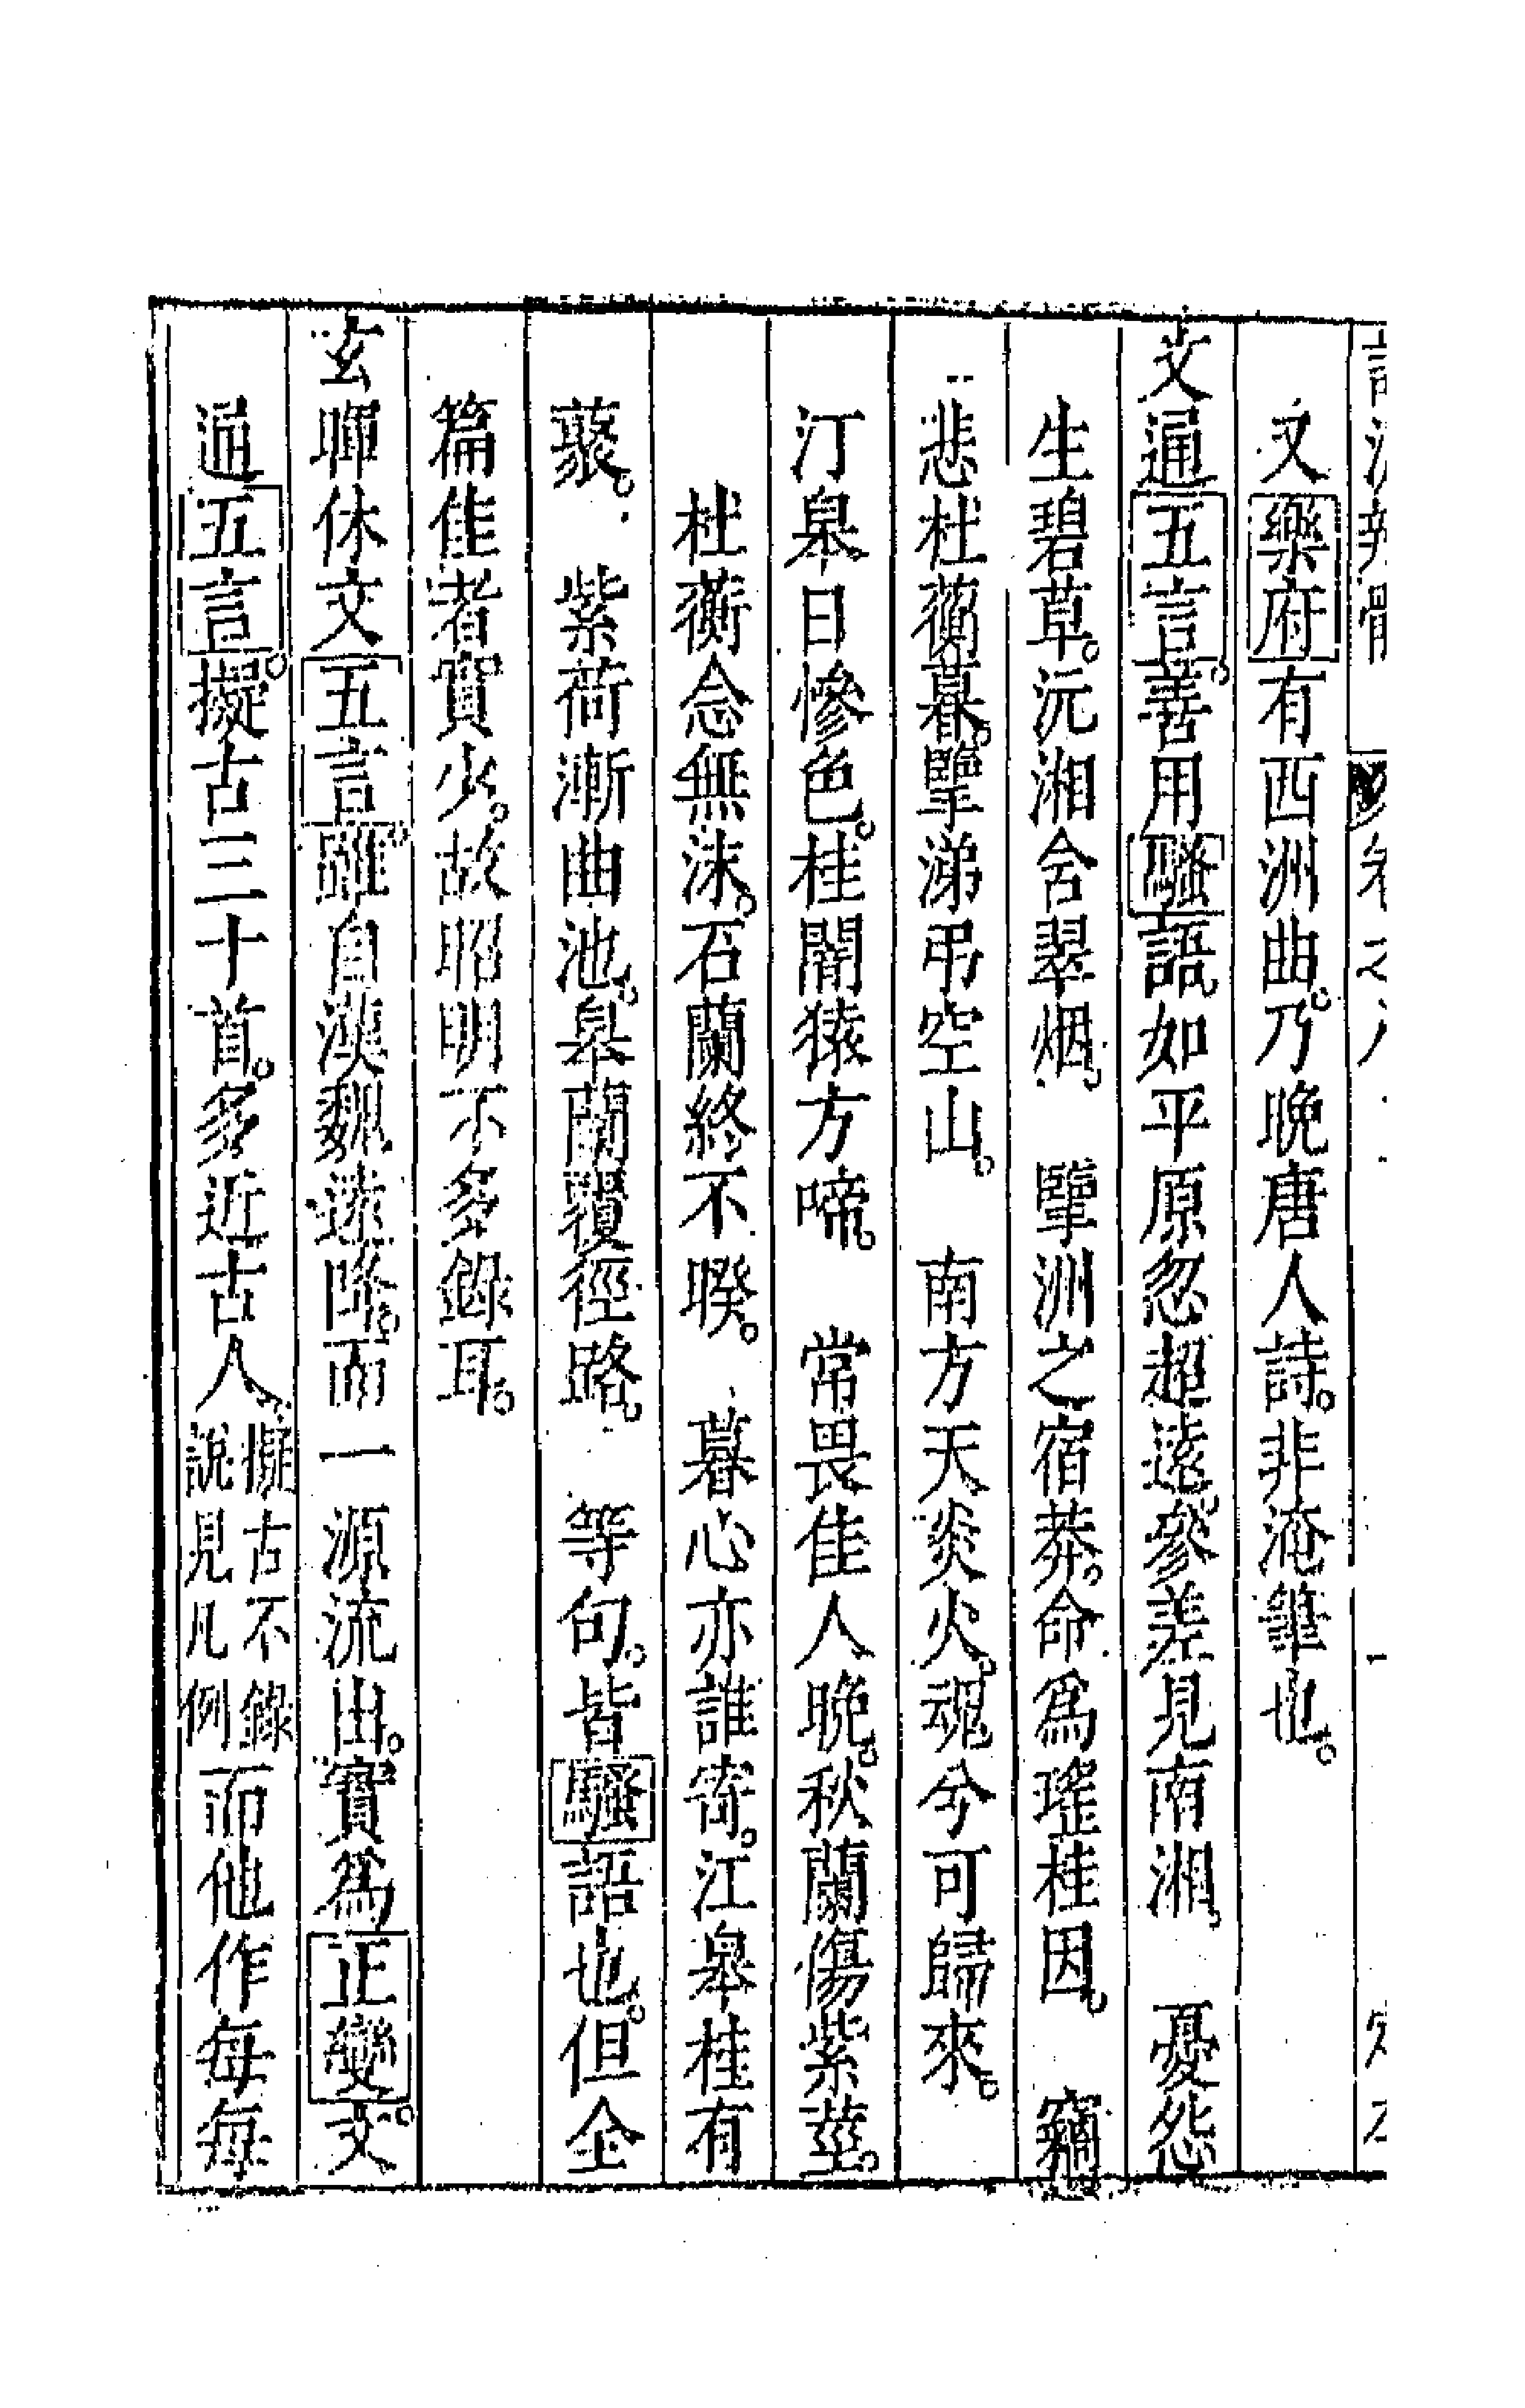 又樂府有西洲曲。乃晚唐人詩。非淹筆也。
文通五言。善用騷語。如平原忽超遠。參差見南湘。　憂怨
生碧草。沅湘含翠烟。　攀洲之宿莽。命爲瑤桂因。　竊
悲杜蘅暮。擥涕弔空山。　南方天炎火。魂兮可歸來。
汀皋日慘色。桂闇猿方啼。　常畏佳人晚。秋蘭傷紫莖。
杜蘅念無沬。石蘭終不暌。　暮心亦誰寄。江皋桂有
蘂。　紫荷漸曲池。皋蘭覆徑路。　等句。皆騷語也。但全
篇佳者實少。故昭明不多錄耳。
玄暉休文五言。雖自漢魏遠降。而一源流出。實爲正變。文
通五言。擬古三十首。多近古人。擬古不錄說見凡例而他作每每